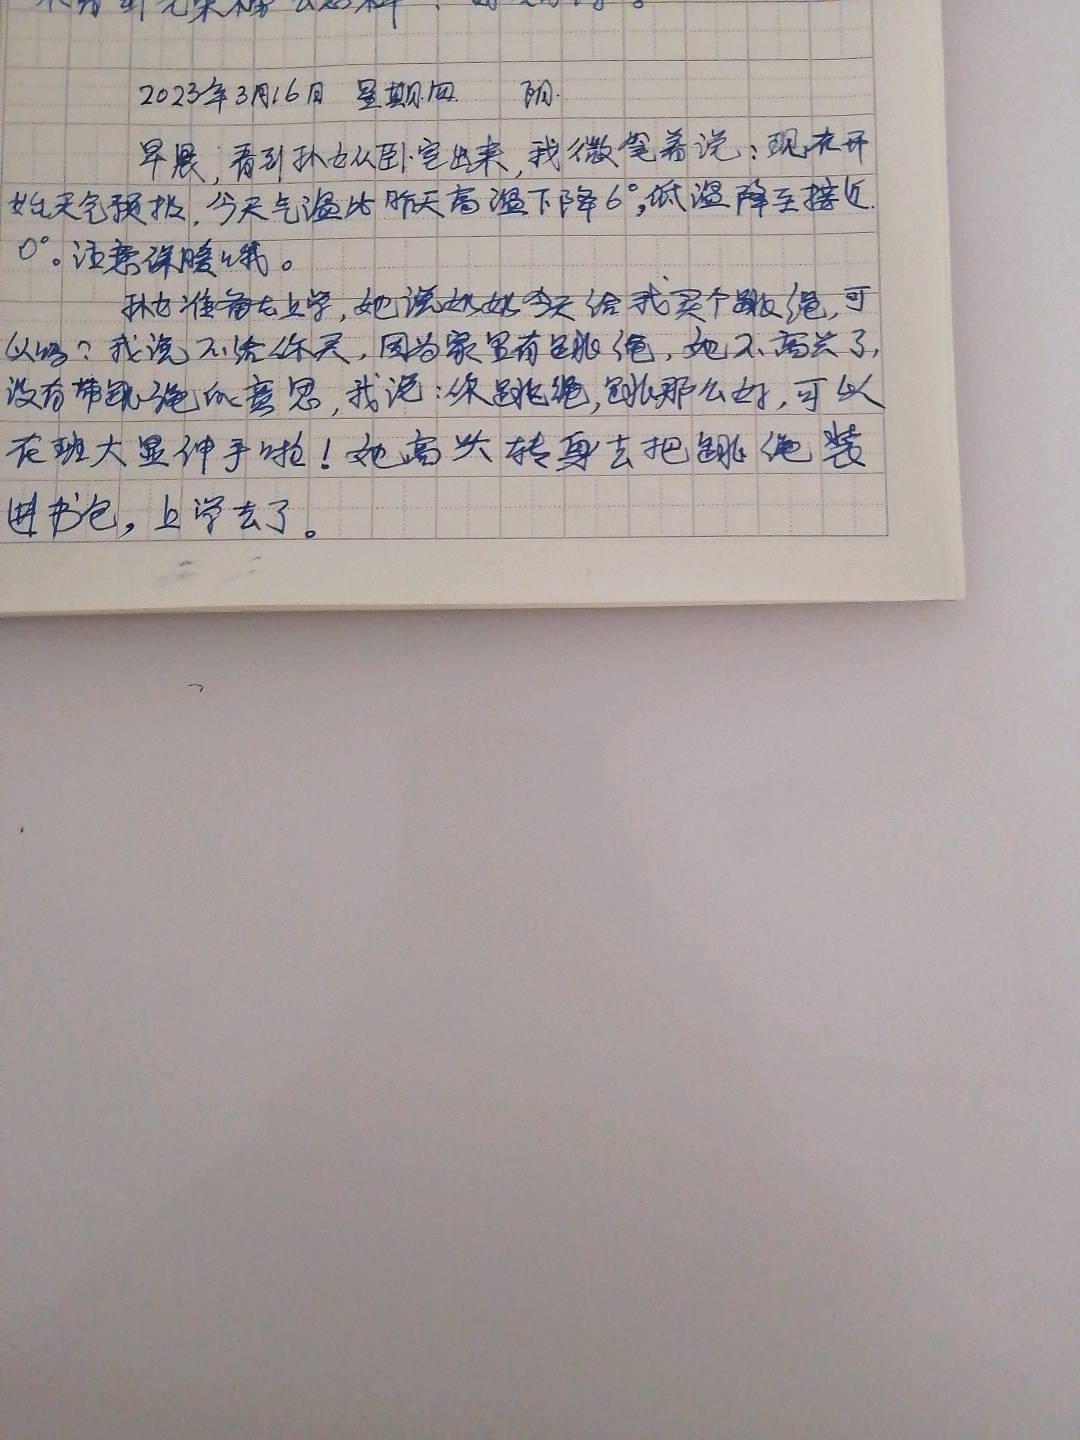 2023年3月16日 星期四 阴.
早晨,看到孙女从卧室出来,我微笑着说:现在开
始天气预报.今天气温比昨天高温下降6°,低温降至接近
0°。注意保暖哦。
孙女准备去上学,她说奶奶今天给我买个跳绳,可
以吗?我说不给你买,因为家里有跳绳,她不高兴了,
没有带跳绳的意思,我说:你跳绳,跳那么好,可以
在班大显伸手啦!她高兴转身去把跳绳装
进书包,上学去了。